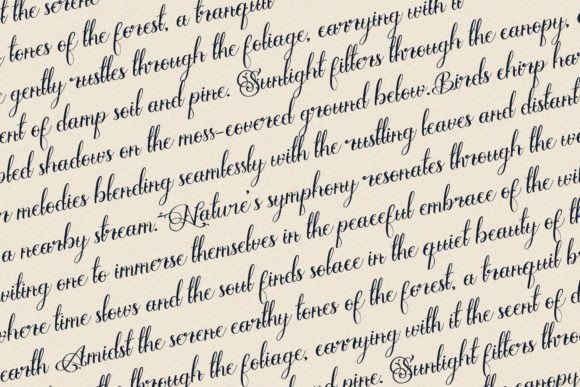 the serene
tones of the forest, a tranquil
gently rustles through the foliage, carrying with it
ent of damp soil and pine. Sunlight filters through the canopy,
pled shadows on the moss-covered ground below.Birds chirp har
r melodies blending seamlessly with the rustling leaves and distant
a nearby stream. Nature's symphony resonates through the wo
viting one to immerse themselves in the peaceful embrace of the wil
where time slows and the soul finds solace in the quiet beauty of th
earth Amidst the serene earthy tones of the forest, a tranquil br
through the foliage, carrying with it the scent of d
nd pine. Sunlight filters thro
the canopy